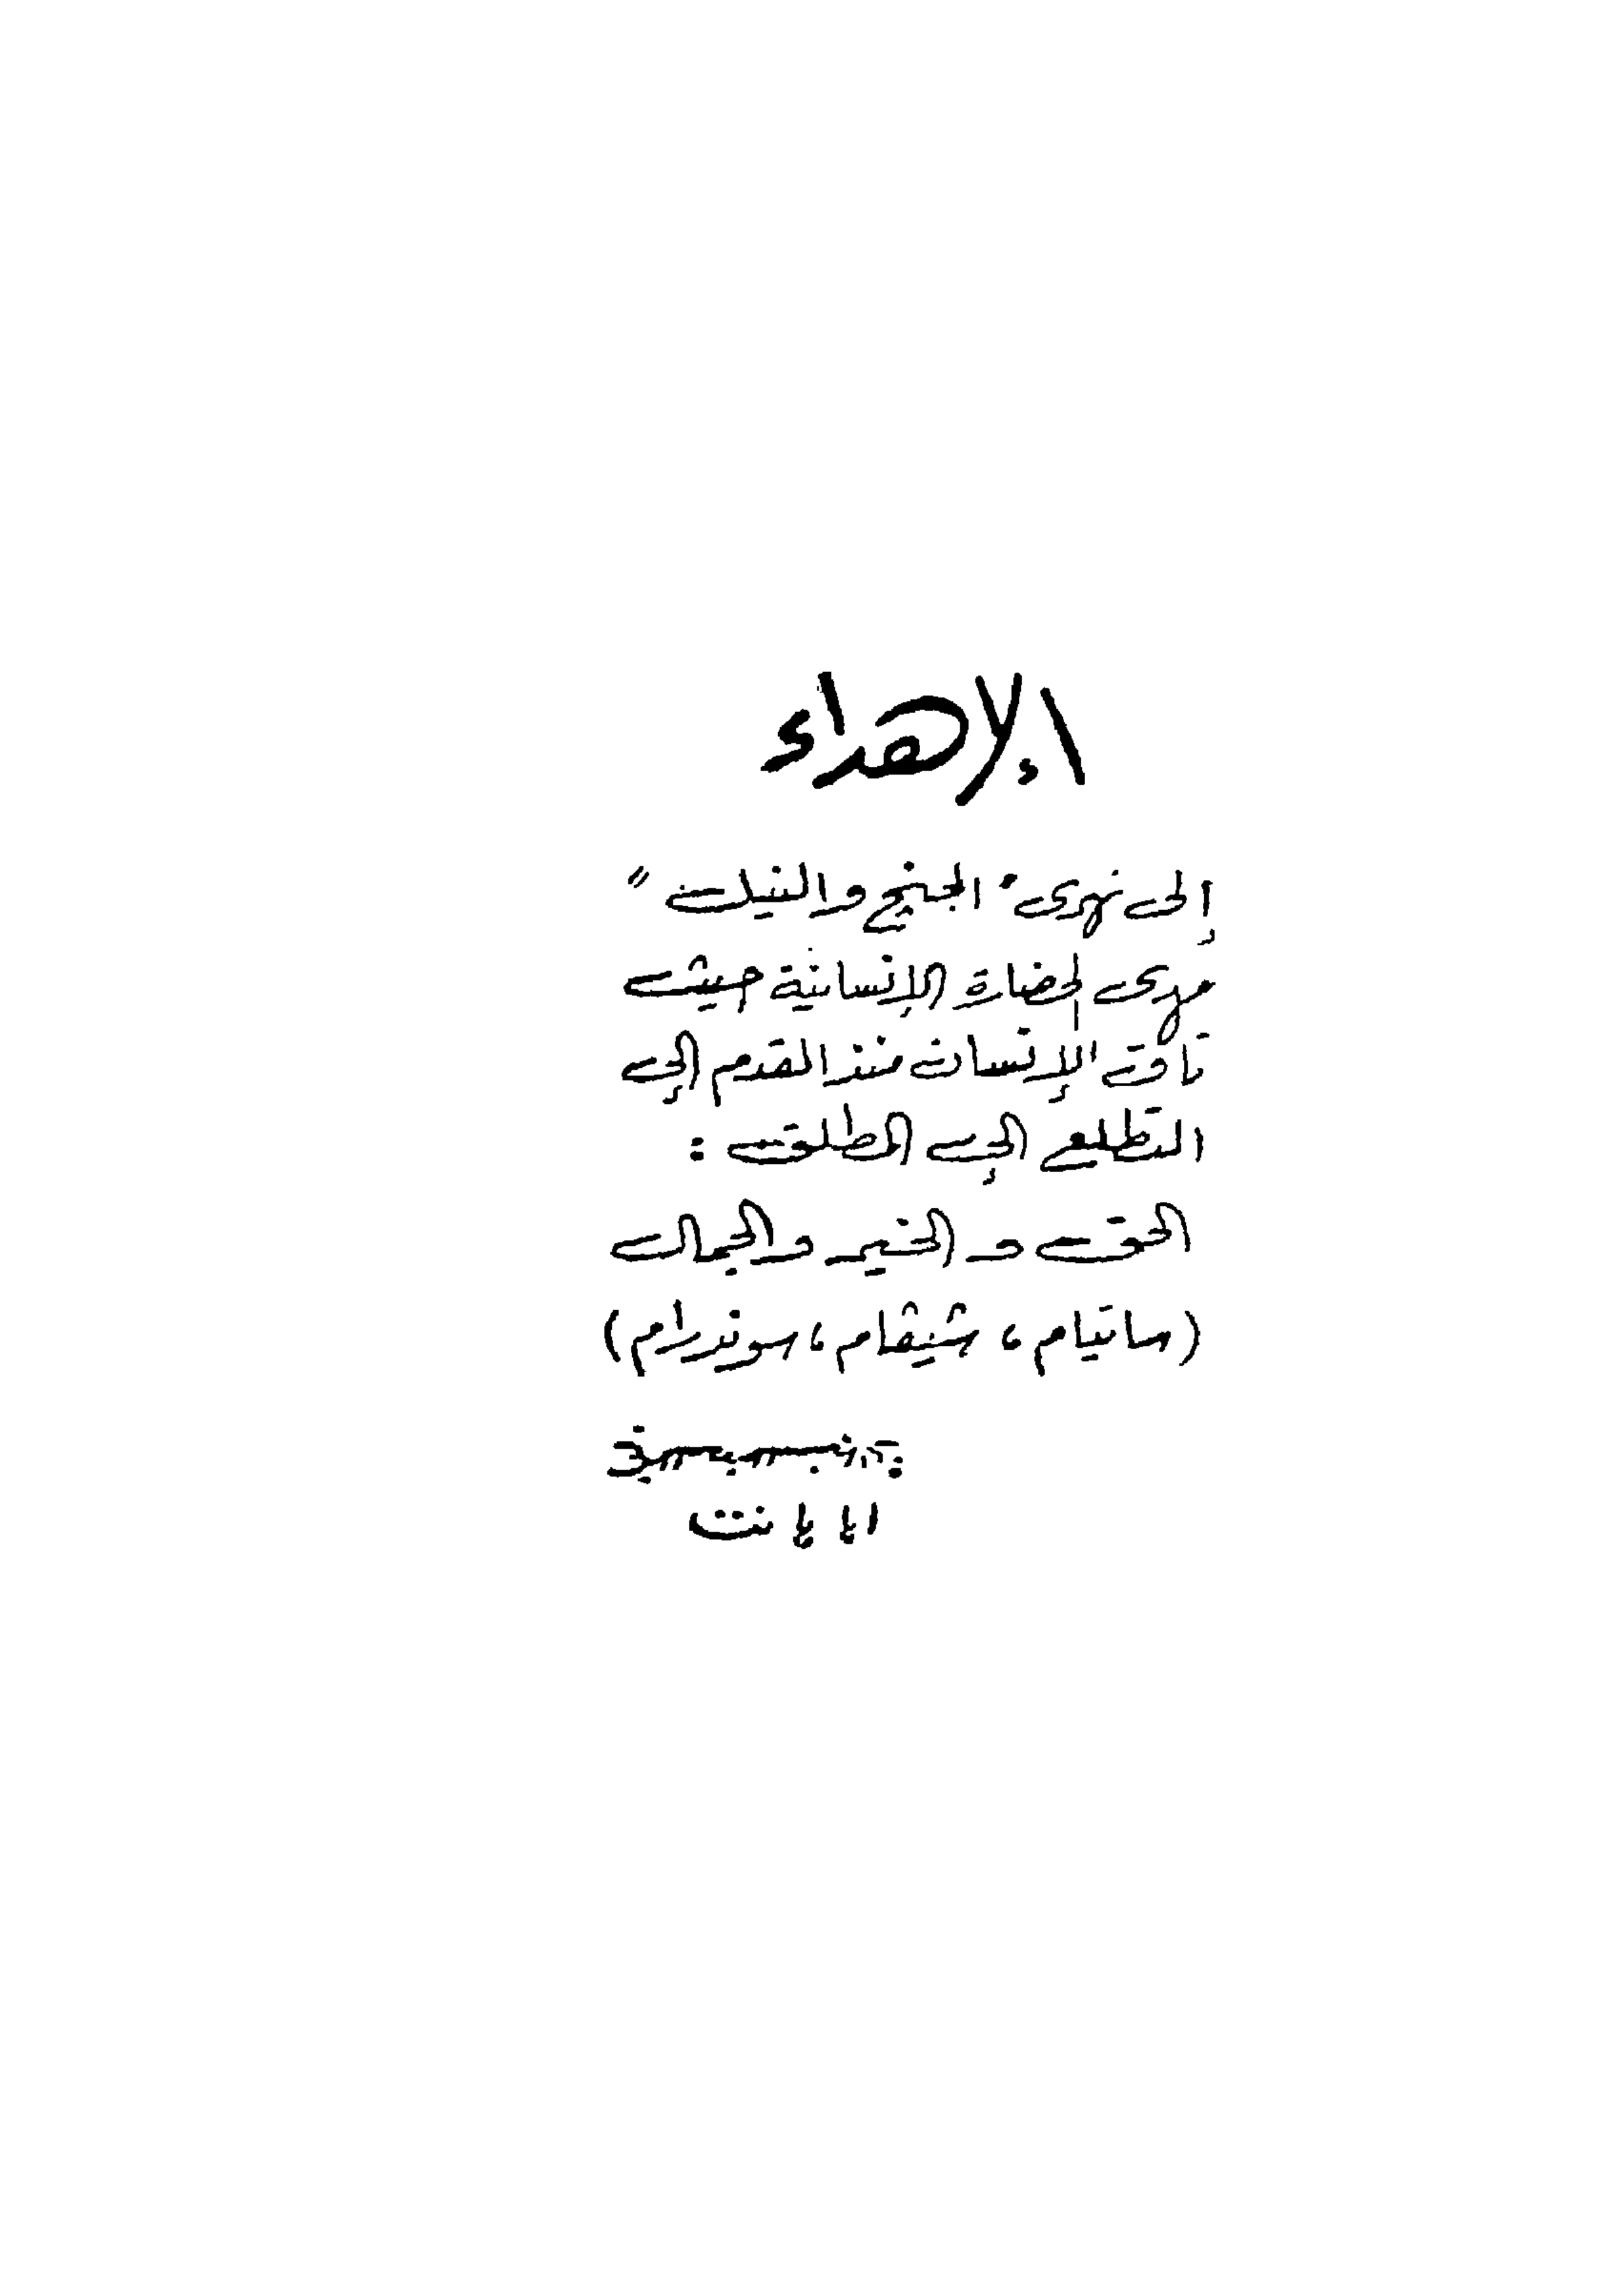 الإهداء
إلى نهرى "الجنج والنيل"
مهدى الحضارة الإنسانية حيث
تاق الإنسان منذ القدم إلى
التطلع إلى المطلق :
الحق و الخير والجمال
(ساتيام ، شيڤام ، سوندرام)
ابا بانت